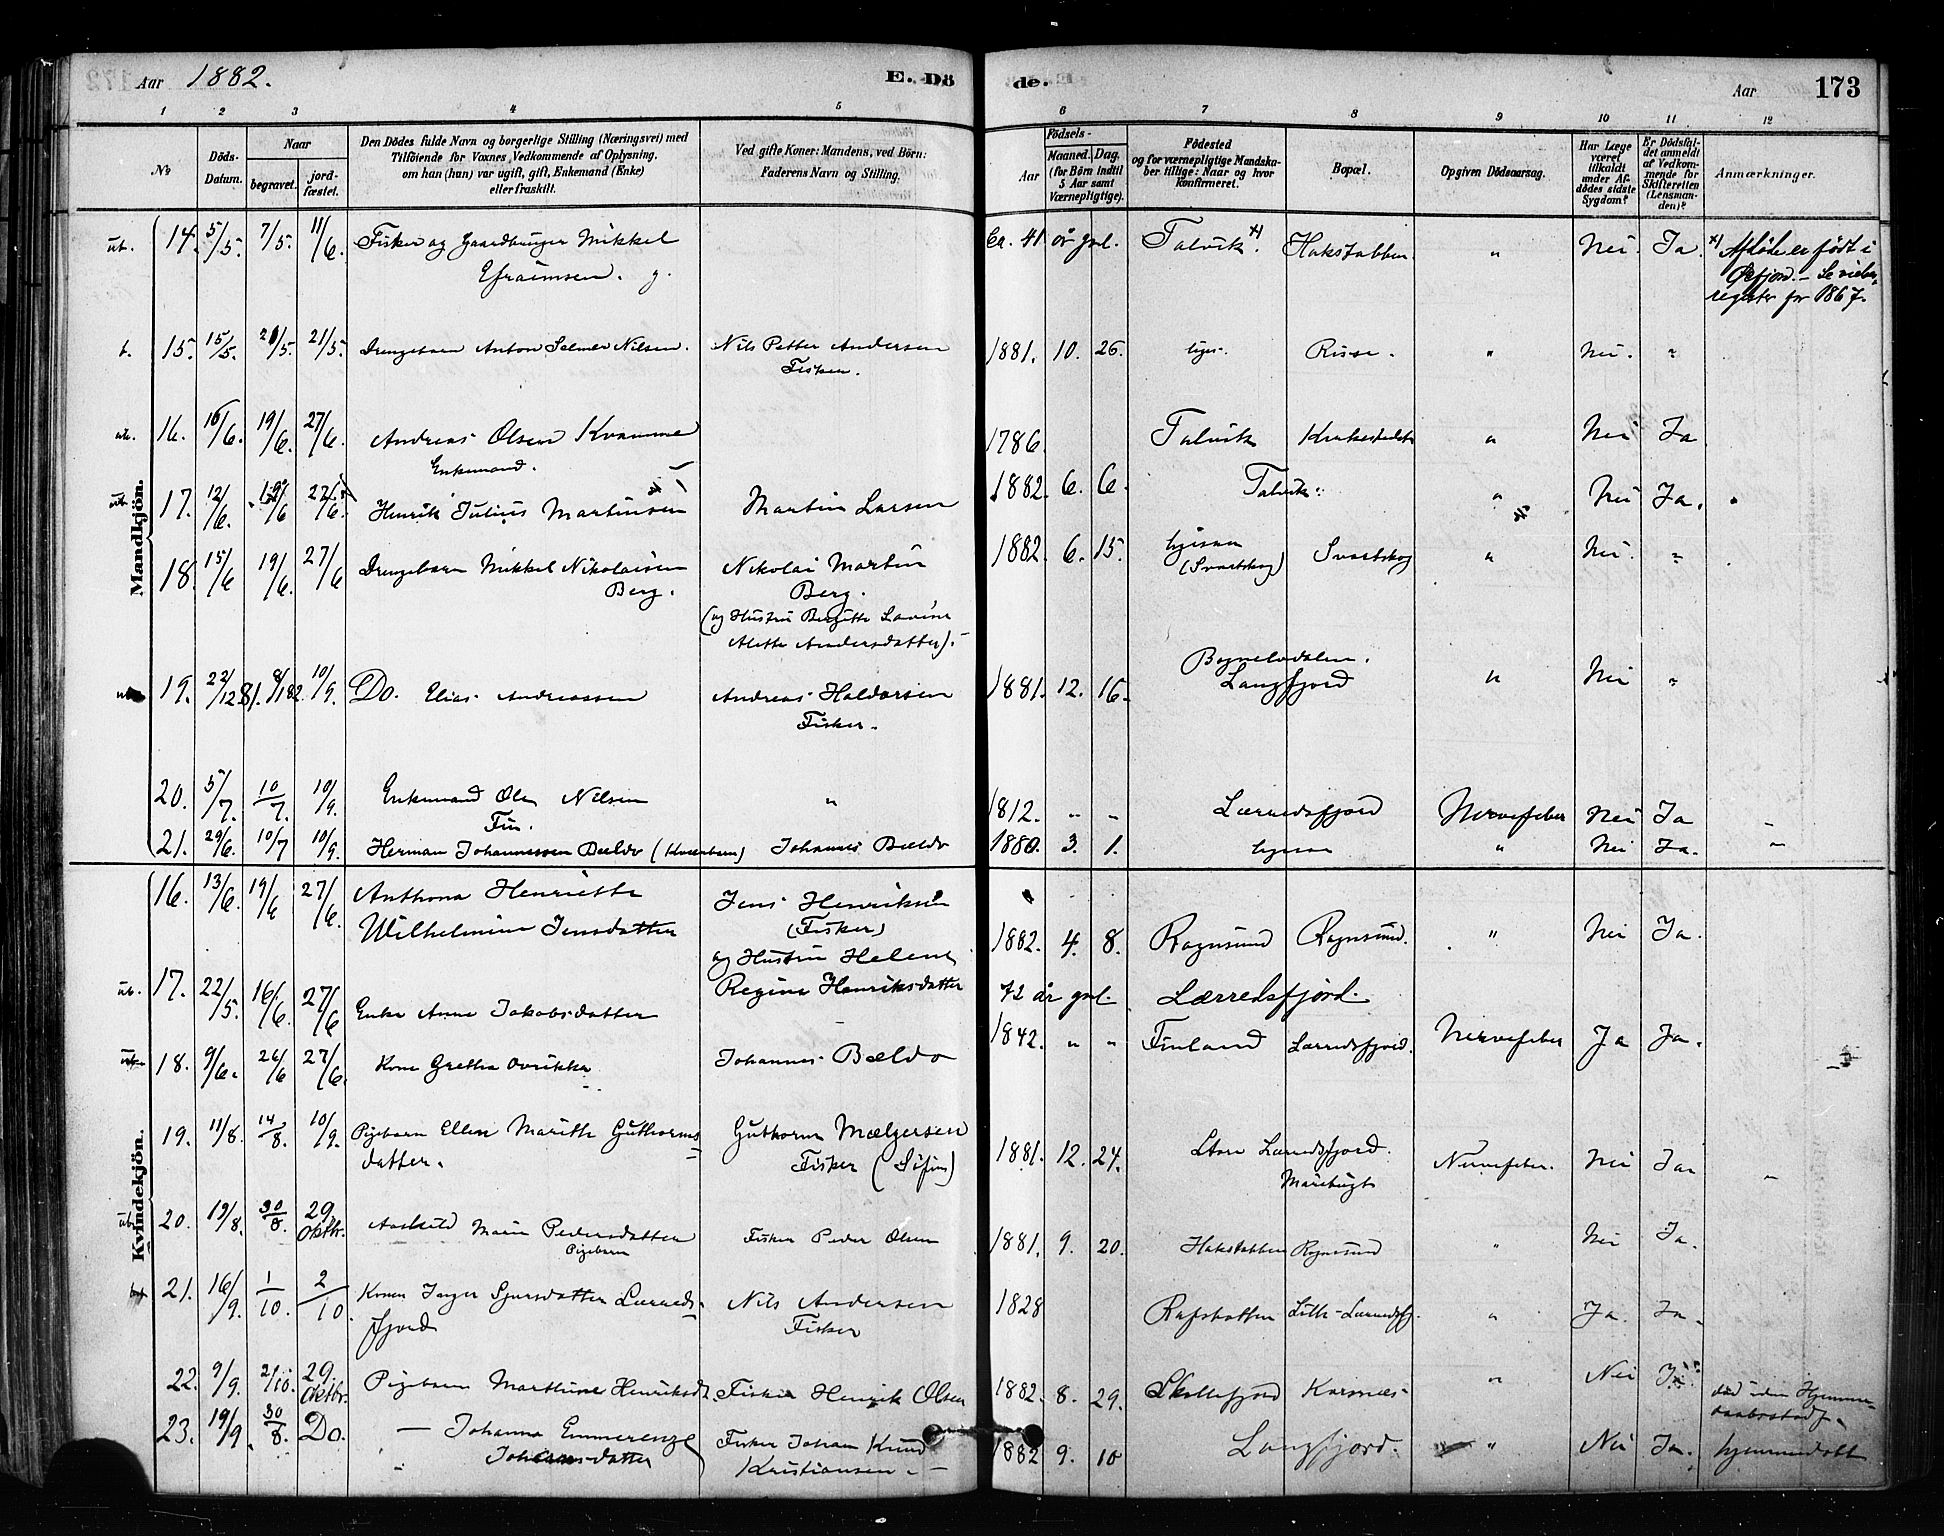 Aar 1882. E. Dö de. Aar 173
1 2 3 4 5 6 7 8 9 10 11 12
No
Döds-Datum.
Naar
begravet.
jordfæstet.
Den Dödes fulde Navn og borgerlige Stilling (Næringsvei) med
Tilföiende for Voxnes Vedkommende af Oplysning,
om han (hun) var ugift, gift, Enkemand (Enke)
eller fraskilt.
Ved gifte Koner: Mandens, ved Börn:
Faderens Navn og Stilling.
Födsels-
Aar
Maaned. Dag.
(for Börn indtil
5 Aar samt
Værnepligtige).
Födested
og for værnepligtige Mandskaber tillige: Naar og hvor
konfirmeret.
Bopæl.
Opgiven Dödsaarsag.
Har Læge
været
tilkaldt
under Afdödes sidste
Sygdom?
Er Dödsfaldet anmeldt
af Vedkommende for
Skifteretten
(Lensmanden)?
Anmærkninger.
Mandkjön.
14. 5/5. 7/5. 11/6. Fisker og Gaardbruger Mikkel Ca. 41 år gml. Talvik x). Hakstabben " Nei. Ja. x) Afdöde er födt i
Efraimsen. g. register for 1867.
15. 15/5. 21/5. 21/5. Drengebarn Anton Selmer Nilsen. Nils Petter Andersen 1881. 10. 26. Russe. " Nei. "
Fisker.
16. 16/6. 19/6. 27/6. Andreas Olsen Kvamme 1786. Talvik " Nei Ja
Enkemand.
17. 12/6. 19/6 27/6. Henrik Julius Martinsen Martin Larsen 1882. 6. 6. Talvik " Nei Ja.
18. 15/6 19/6. 27/6 Drengebarn Mikkel Nikolaisen Nikolai Martin 1882. 6. 15. (Svartskog) Svartskog " Nei. "
Berg. Berg.
(og Hustru Birgitte Lavine
Alette Andersdatter).
19. 22/12 81. 8/1 82. 10/9. Do. Elias Andreassen Andreas Haldorsen 1881. 12. 16. Langfjord " Nei "
Fisker.
20. 5/7. 10/7. 10/9. Enkemand Ole Nilsen " 1812. " " Lærredsfjord Nervefeber Nei Ja
Fin.
21. 29/6. 10/7 10/9. Herman Johannessen Bældo (Kvænbarn) Johannes Bældo 1880. 3. 1. " Nei Ja.
Kvindekjön.
16. 13/6. 19/6 27/6. Anthona Henriette Jens Henriksen
Wilhelmine Jensdatter (Fisker) 1882. 4. 8. Rognsund Rognsund. " Nei Ja.
og Hustru Helene
17. 22/5. 16/6. 27/6 Enke Anne Jakobsdatter Regine Henriksdatter 72 år gml. Lærredsfjord.
18. 9/6. 26/6 27/6. Kone Grethe Johannes Bældo 1842. " " Finland Lærredsfjord. Nervefeber Ja Ja.
19. 11/8. 14/8. 10/9. Pigebarn Ellen Marith Guthorms= Guthorm Mælgersen 1881. 12. 24. Store Lærredsfjord. Nervefeber. Nei Ja
datter. Fisker (Söfin)
20. 19/8. 30/8. 29. Oktbr. Marie Pedersdatter Fisker Peder Olsen 1881. 9. 20. Hakstabben Rognsund " Nei Ja.
Pigebarn
21. 16/9. 1/10. 2/10. Konen Inger Sjursdatter Lærreds= Nils Andersen 1828 " Ja. Ja.
fjord Fisker
22. 9/9. 2/10. 29. Oktbr. Pigebarn Marthine Henriksdt. Fisker Henrik Olsen 1882. 8. 29. Korsnæs " Nei
23. 19/9. 30/8. Do. — Johanna Emmerenze Fisker Johan Knud 1882 9. 10 Langfjord. " Nei Ja. hjemmedöbt
Johansdatter Kristiansen